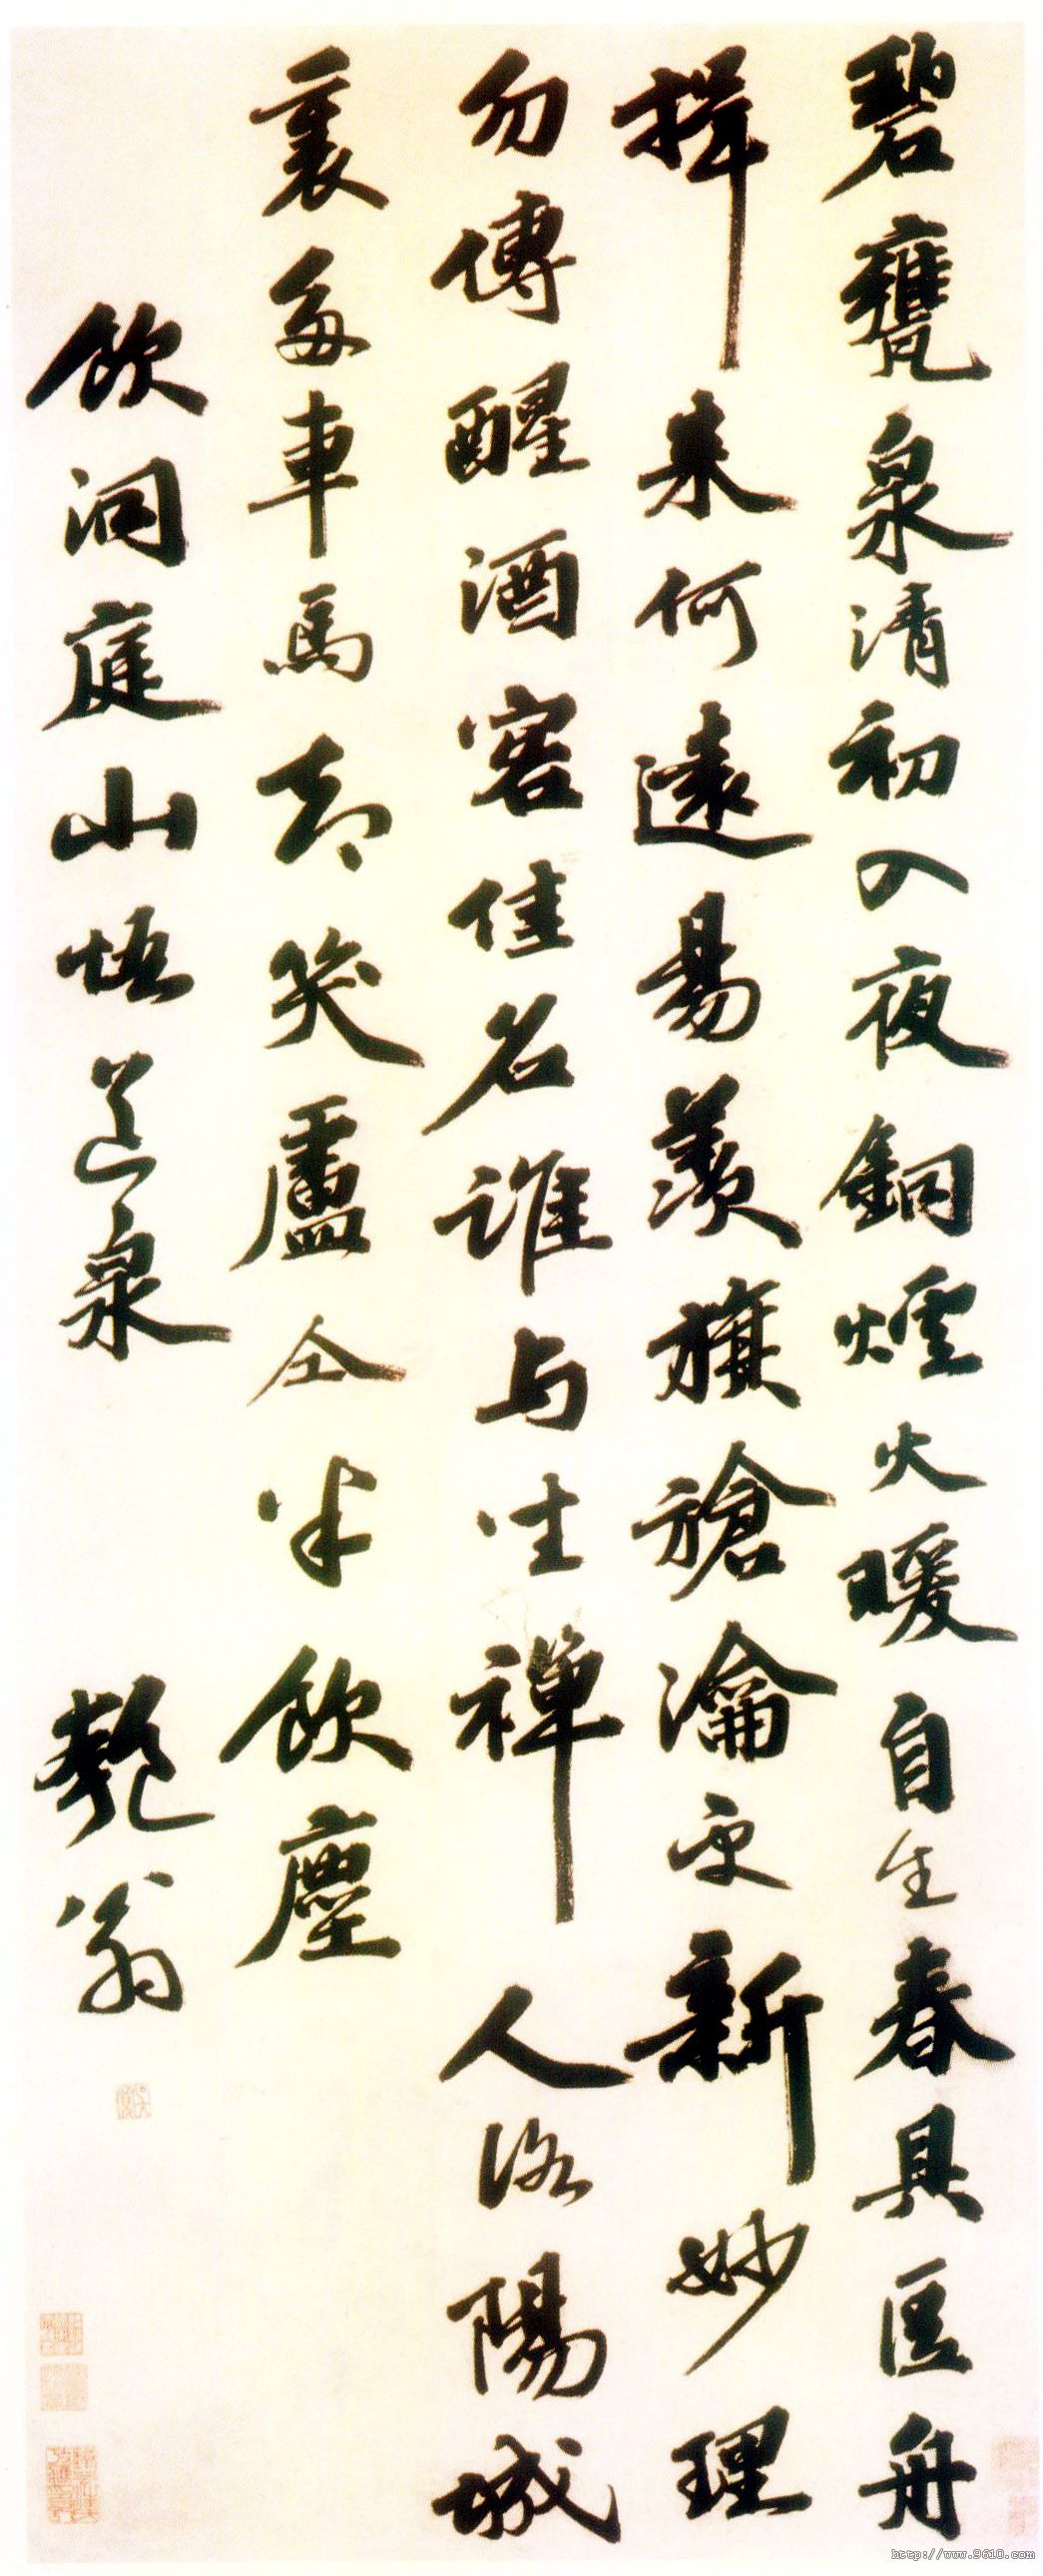 碧甕泉清初入夜銅爐火暖自生春具區舟
楫来何遠昜羨旗槍瀹更新妙理
勿傳醒酒客佳名誰与坐禪人洛陽城
裏多車馬却笑盧仝半飲塵
飲洞庭山悟道泉 匏翁
http://www.9610.com